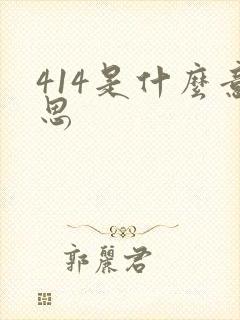 414是什麼意
思
郭麗君